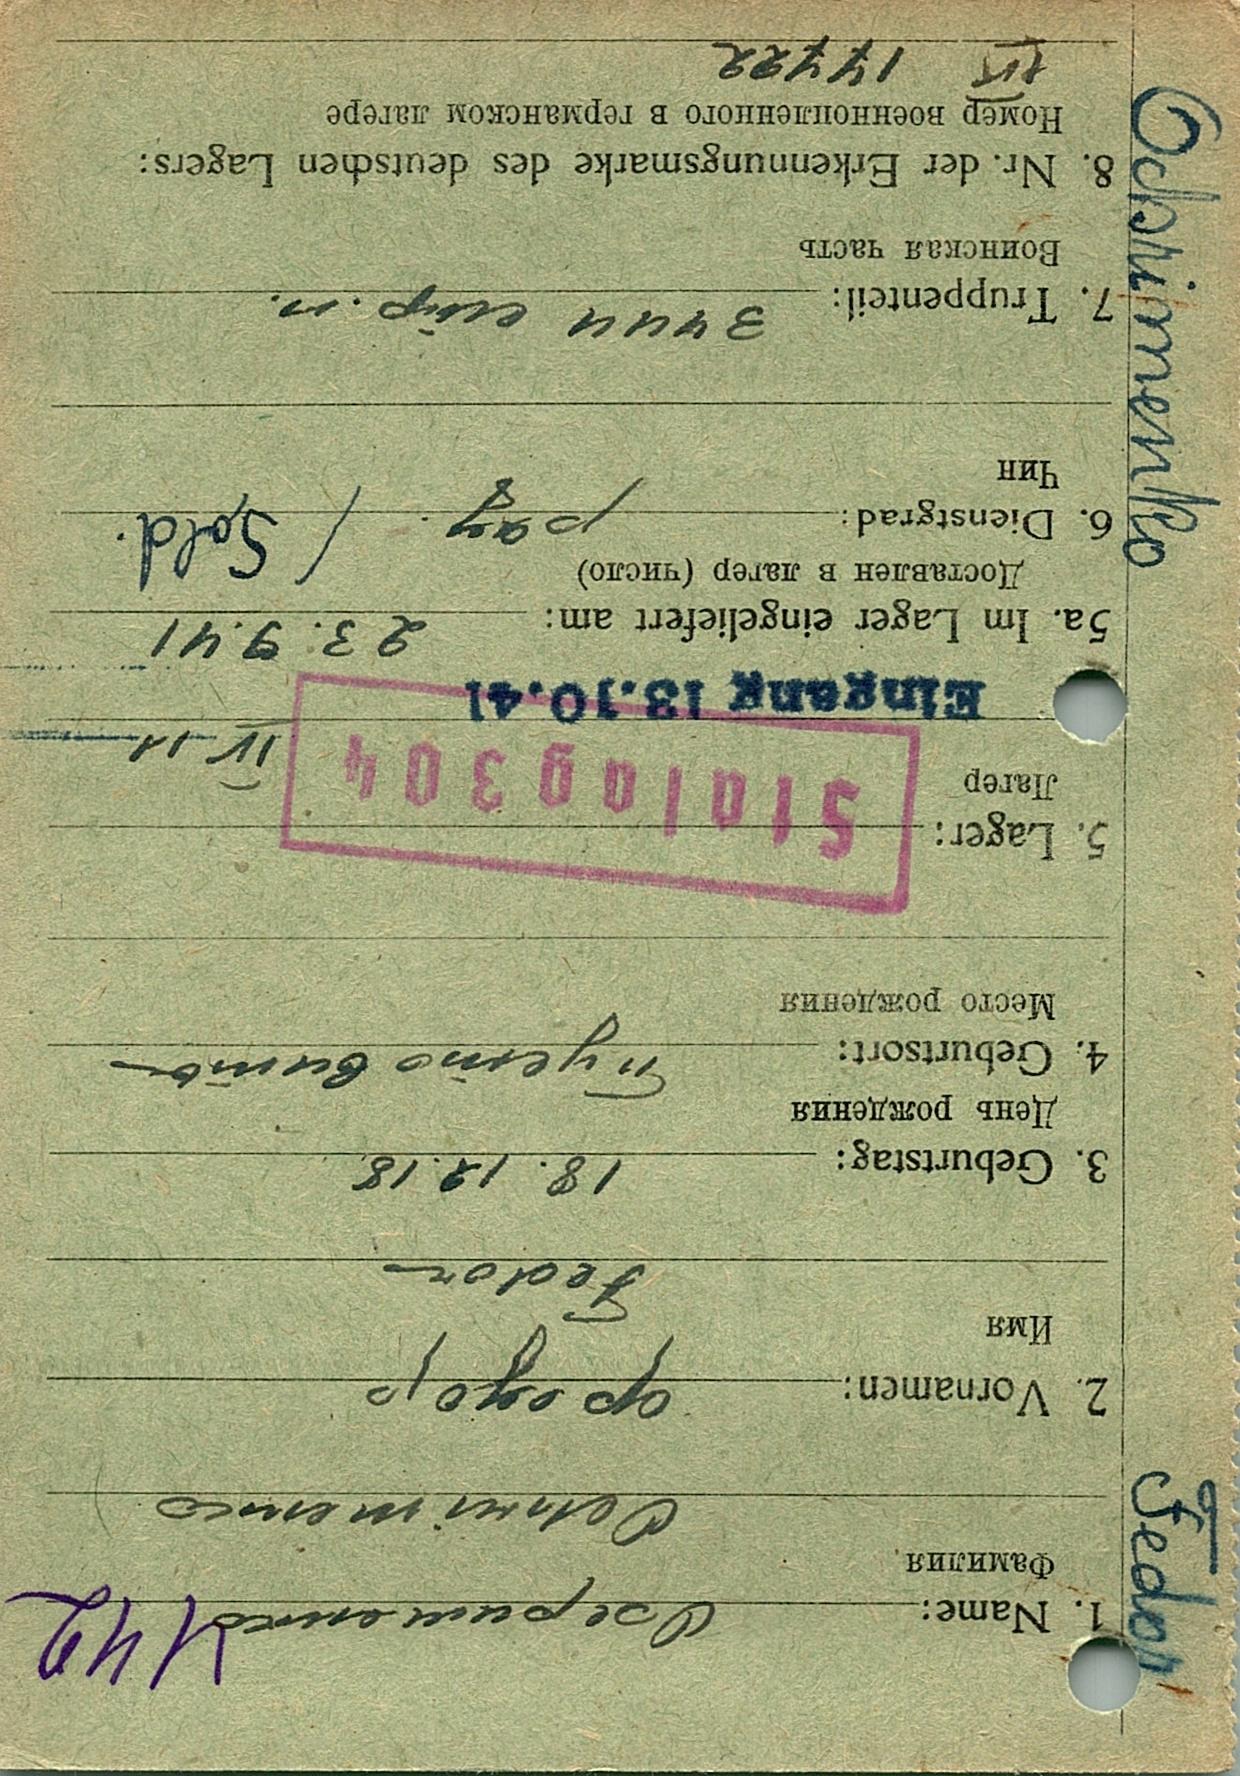 442
1. Name: Охрименко
Фамилия
Ochrimenko
2. Vornamen: Федор
Имя
Fedor
3. Geburtstag: 18.12.18
День рождения
4. Geburtsort:
Место рождения
5. Lager:
Лагер
Stalag 304
Eingang 13.10.41
5a. Im Lager eingeliefert am: 23.9.41
Доставлен в лагер (число)
6. Dienstgrad: ряд. / Sold.
Чин
7. Truppenteil: 3444 стр. п.
Воинская часть
8. Nr. der Erkennungsmarke des deutschen Lagers:
Номер военнопленного в германском лагере
17722
Ochrimenko Fedor